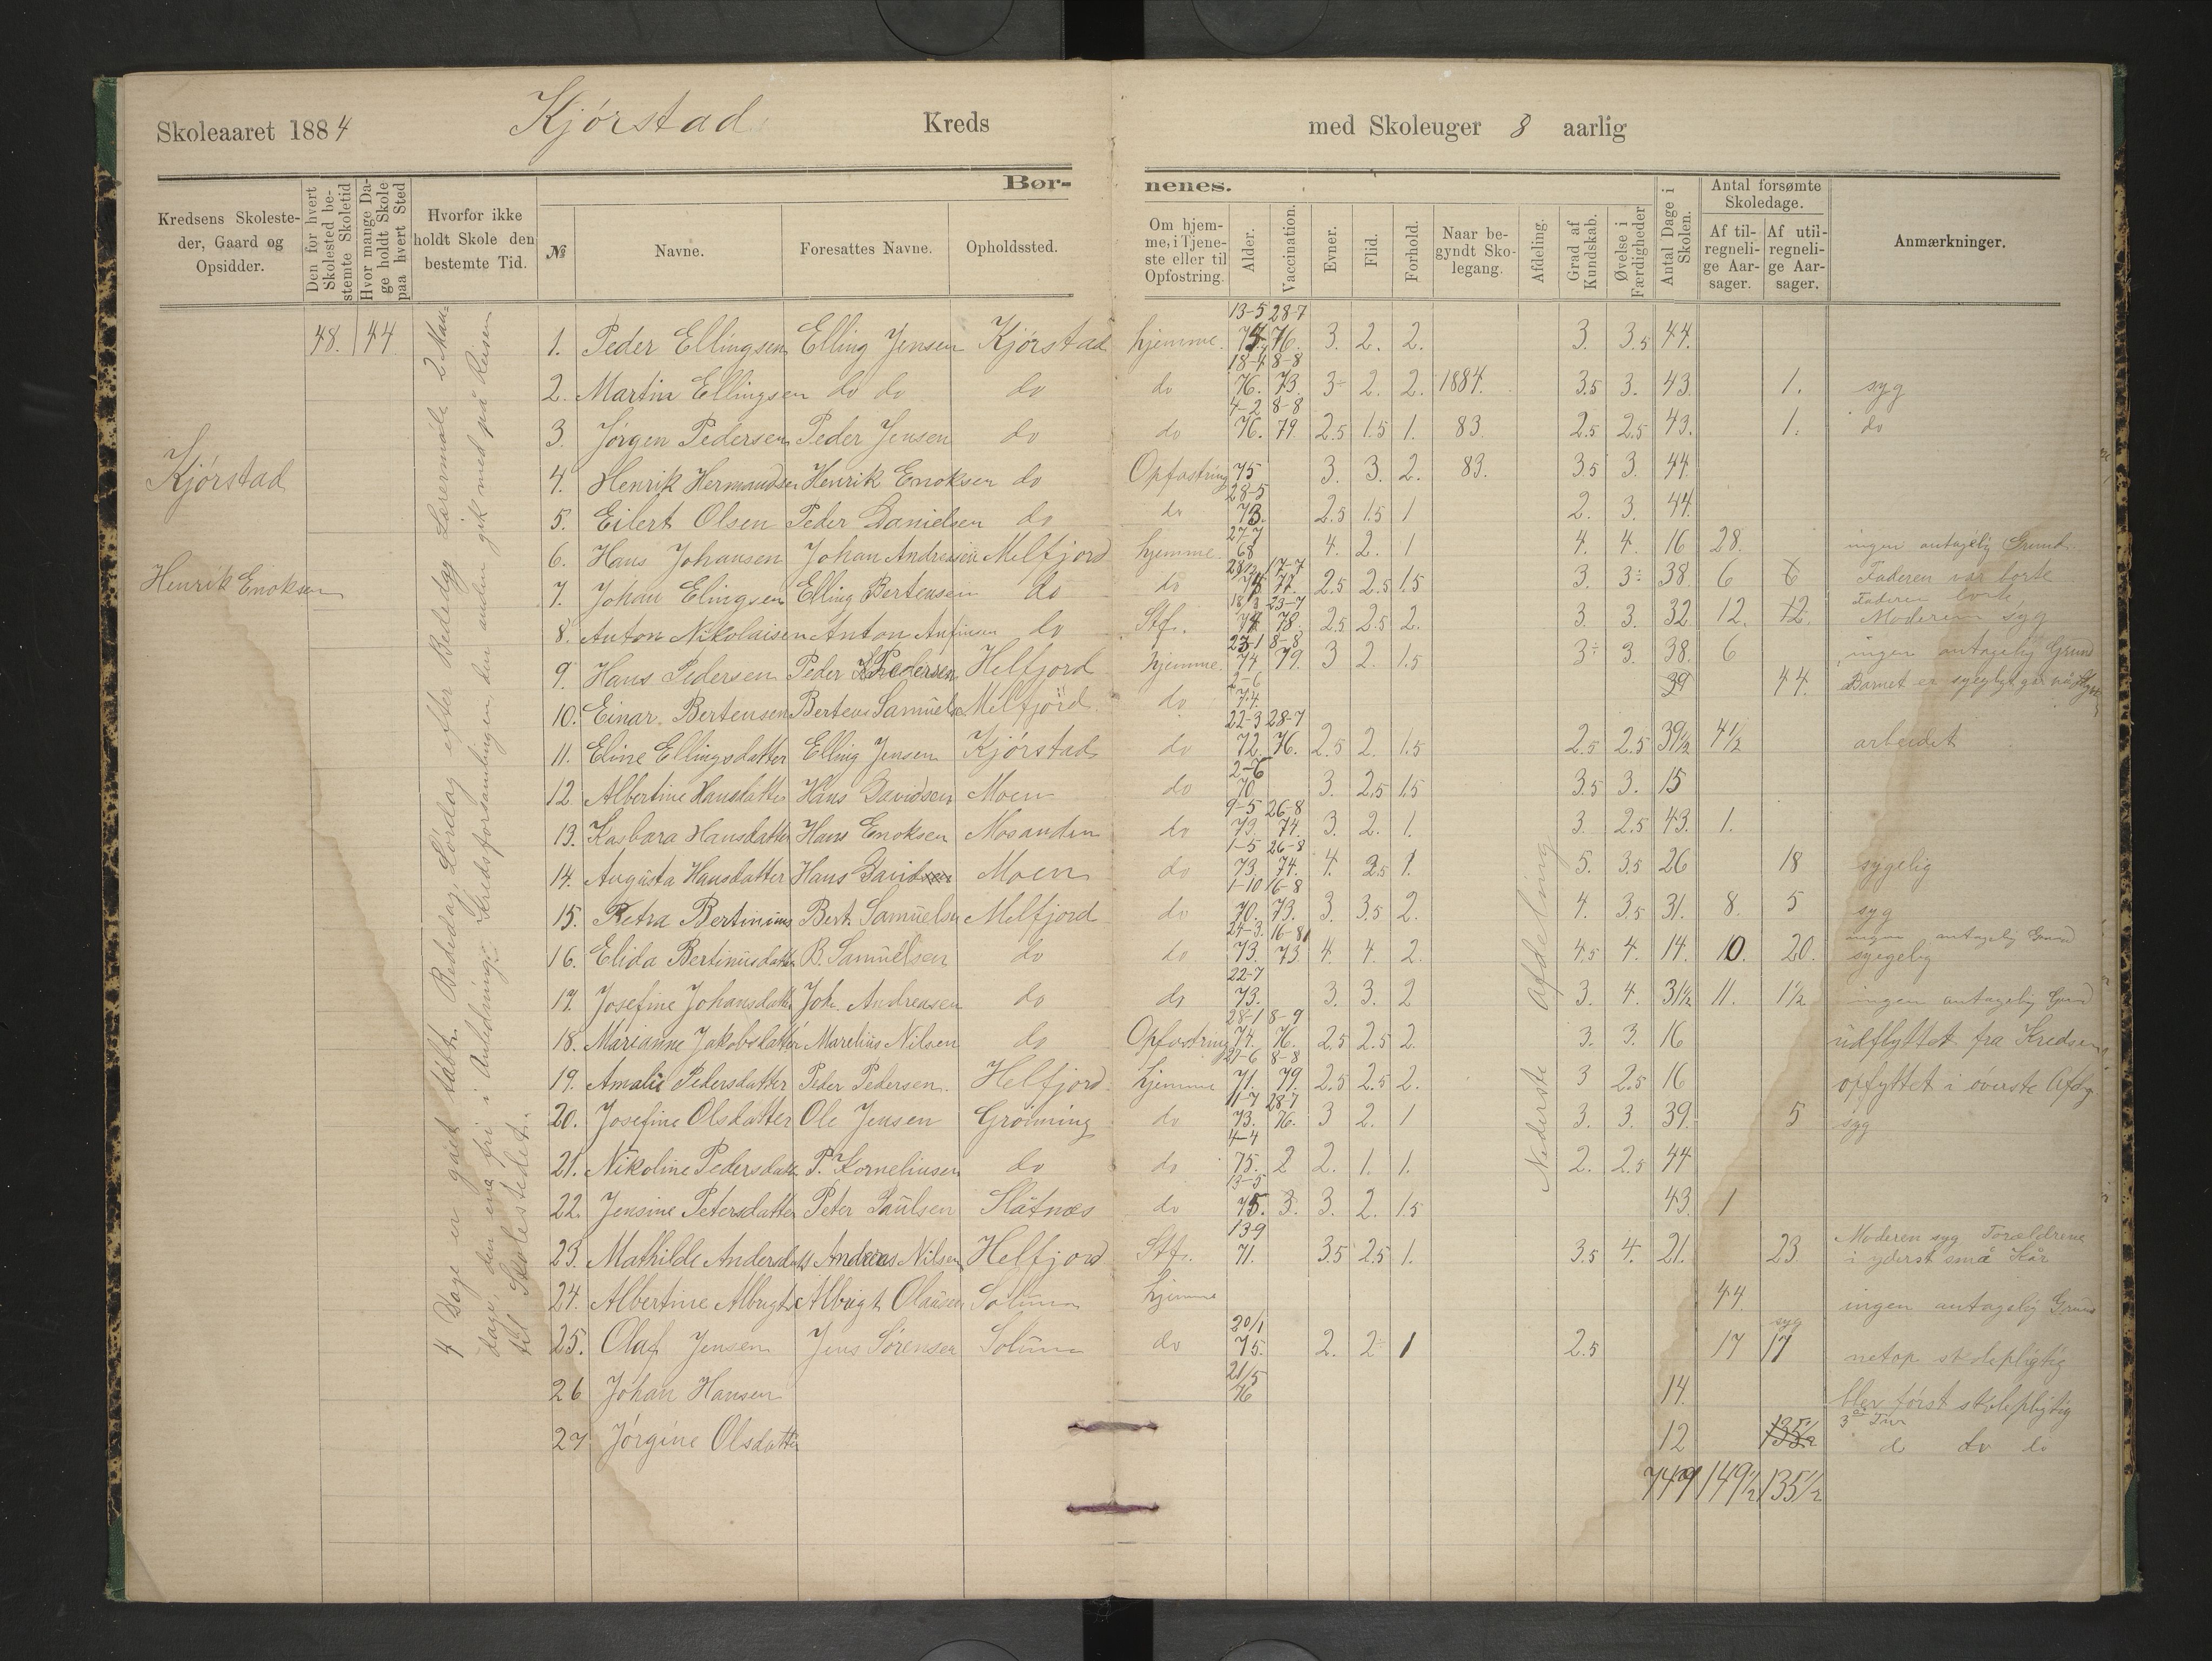 Skoleaaret 1884 Kjórstad Kreds med Skoleuger 8 aarlig
Bør- nenes.
Kredsens Skolesteder, Gaard og Opsidder.
Den for hvert Skolested bestemte Skoletid
Hvor mange Dage holdt Skole paa hvert Sted
Hvorfor ikke holdt Skole den bestemte Tid.
№
Navne.
Foresattes Navne.
Opholdssted.
Om hjemme, i Tjeneste eller til Opfostring.
Alder.
Vaccination.
Evner.
Flid.
Forhold.
Naar begyndt Skolegang.
Afdeling.
Grad af Kundskab.
Øvelse i Færdigheder
Antal Dage i Skolen.
Antal forsømte Skoledage.
Af tilregnelige Aarsager.
Af utilregnelige Aarsager.
Anmærkninger.
48. 44
Kjórstad
Henrik Enoksen
4 Dage er gået tabt. Bededag, Lördag efter Bededag Læremöte 2 Man-
dage, den ene fri i Anledning: Kredsforsamlingen, den anden gik med på Reisen
til Skolestedet.
Nederste Afdeling
1. Peder Ellingsen Elling Jensen Kjórstad hjemme. 13-5 75. 28-7 76. 3. 2. 2. 3. 3.5 44.
2. Martin Ellingsen do do do do 18-4 76. 8-8 73 3÷ 2. 2. 1884. 3.5 3. 43 1. syg
3. Jórgen Pedersen Peder Jensen do do 4-2 76. 8-8 79 2.5 1.5 1. 83 2.5 2.5 43. 1. do
4. Henrik Hermandsen Henrik Enoksen do Opfostring 75 3. 3. 2. 83. 3.5 3. 44.
5. Eilert Olsen Peder Danielsen do do 28-5 73. 2.5 1.5 1 2. 3. 44.
6. Hans Johansen Johan Andreasen Melfjord hjemme. 27-7 68 4. 2. 1 4. 4. 16 28. ingen antagelig Grund
7. Johan Elingsen Elling Bertensen do do 28/2 75 17-7 77. 2.5 2.5 1.5 3. 3÷ 38. 6 6 Faderen var borte
8. Anton Nikolaisen Anton Anfinsen do Stf. 18/8 74 23-7 78. 2.5 2.5 2. 3. 3. 32 12. 12. Faderen borte, Moderen syg
9. Hans Pedersen Peder Pedersen Helfjord hjemme. 23-1 74. 8-8 79. 3 2. 1.5 3÷ 3. 38. 6 ingen antagelig Grund
10. Einar Bertensen Bertens Samuels Melfjörd. do 2-6 74. 39 44. Barnet er
11. Eline Ellingsdatter Elling Jensen Kjórstad do 22-3 72. 28-7 76. 2.5 2. 1.5 2.5 2.5 39½ 4½ arbeidet
12 Albertine Hansdatter Hans Davidsen Moen do 2-6 70 3. 2.5 1.5 3.5 3. 15
13. Kasbara Hansdatter Hans Enoksen Mosanden do 9-5 73. 26-8 74. 3. 2. 1. 3. 2.5 43. 1.
14. Augüsta Hansdatter Hans Davidsen Moen do 1-5 73. 26-8 74. 4. 2.5 1. 5. 3.5 26 18 sygelig
15. Petra Bertinius Bert. Samüelsen Melfjord do 1-10 70. 16-8 73. 3. 3.5 2. 4. 3.5 31. 8. 5 syg
16. Elida Bertiniusdatter B. Samüelsen do do 24-3. 73. 16-8 73 4. 4. 2. 4.5 4. 14. 10. 20. ingen antagelig Grund sygelig
17. Josefine Johansdatter Joh. Andreasen do do 22-7 73. 3. 3. 2 3. 4. 31½ 11. 1½ ingen antagelig Grund
18. Marianne Jakobsdatter Marelius Nilsen do Opfostring 28-1 74. 8-9 76. 2.5 2.5 2. 3. 3. 16 udflyttet fra Kredsen
19. Amalie Pedersdatter Peder Pedersen. Helfjord. hjemme 27-6 71. 8-8 79. 2.5 2.5 2. 3 2.5 16 opfyttet i överste Afdg
20. Josefine Olsdatter Ole Jensen Gröinning do 11-7 73. 28-7 76. 3 2. 1 3. 3. 39. 5 syg
21. Nikoline Pedersdatt P. Korneliusen do do 4-4 75. 2 2. 1. 1. 2. 2.5 44
22. Jensine Petersdatter Peter Paülsen Slåtnæs do 13-5 75. 3. 3. 2. 1.5 43. 1
23. Mathilde Andersdatt Andreas Nilsen Helfjord Stf. 13-9 71. 3.5 2.5 1. 3.5 4. 21. 23 Moderen syg Forældrene i yderst små Kår
24. Albertine Albrigts Albrigt Olaüsen Solüm hjemme 44. ingen antagelig Grund
25. Olaf Jensen Jens Sörensen Solüm do 20/1 75. 2. 2 1 2.5 17 syg 17 netop skolepligtig
26 Johan Hansen 21/5 76 14. blev først skolepligtig 3die Tur
27 Jórgine Olsdatter 12 135½ d do do
749 149½ 135½